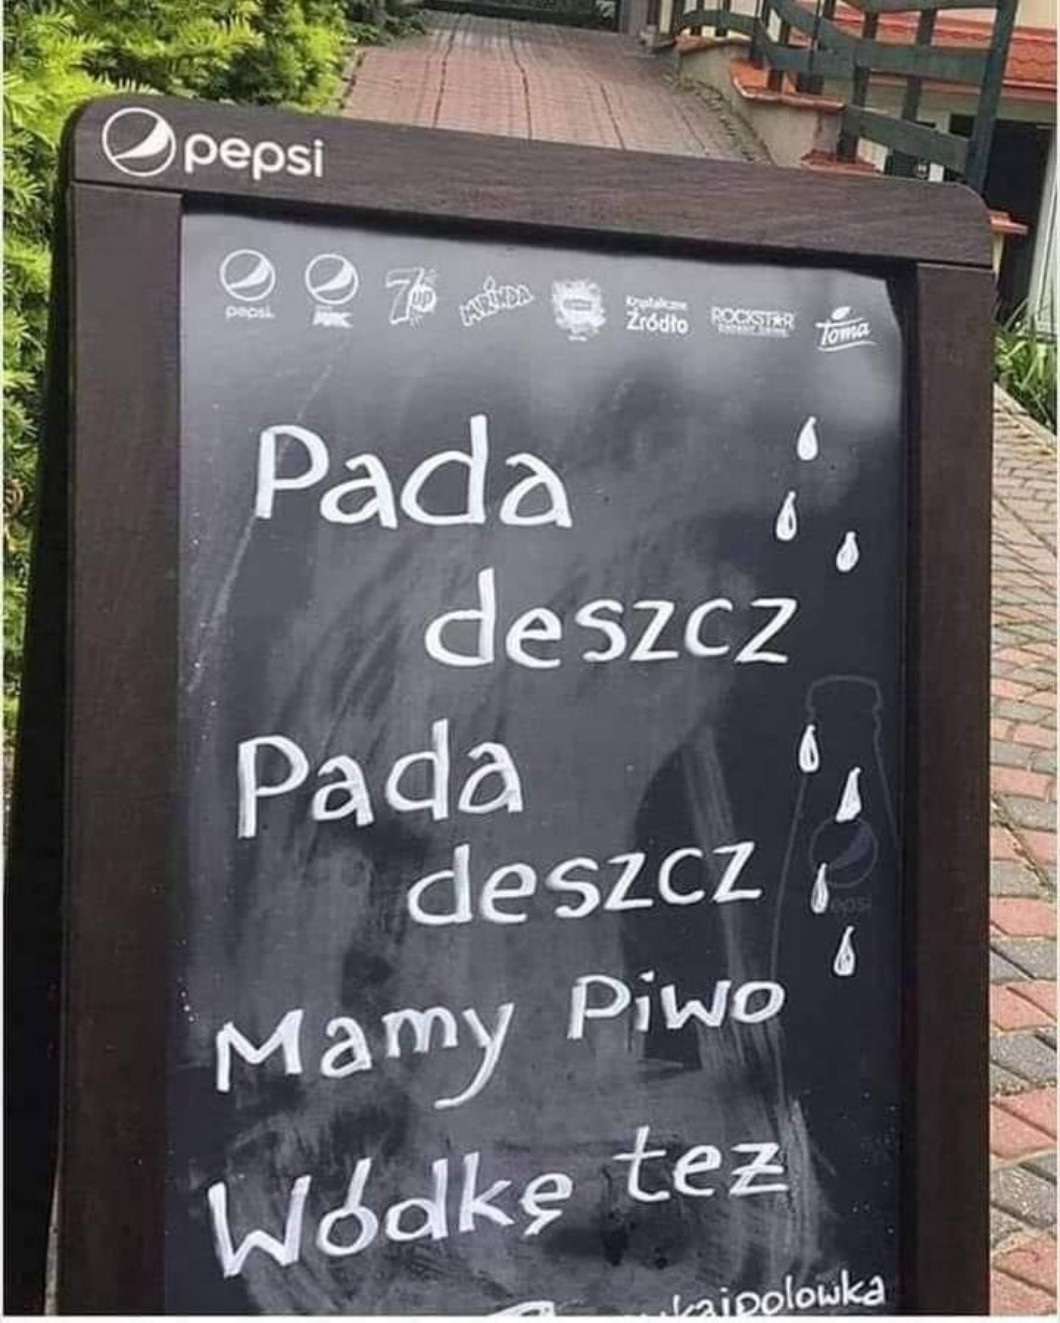 pepsi
pepsi. 7up MIRINDA Krystaliczne Źródło ROCKSTAR ENERGY DRINK Toma
Pada
deszcz
Pada
deszcz
Mamy Piwo
Wódkę tez